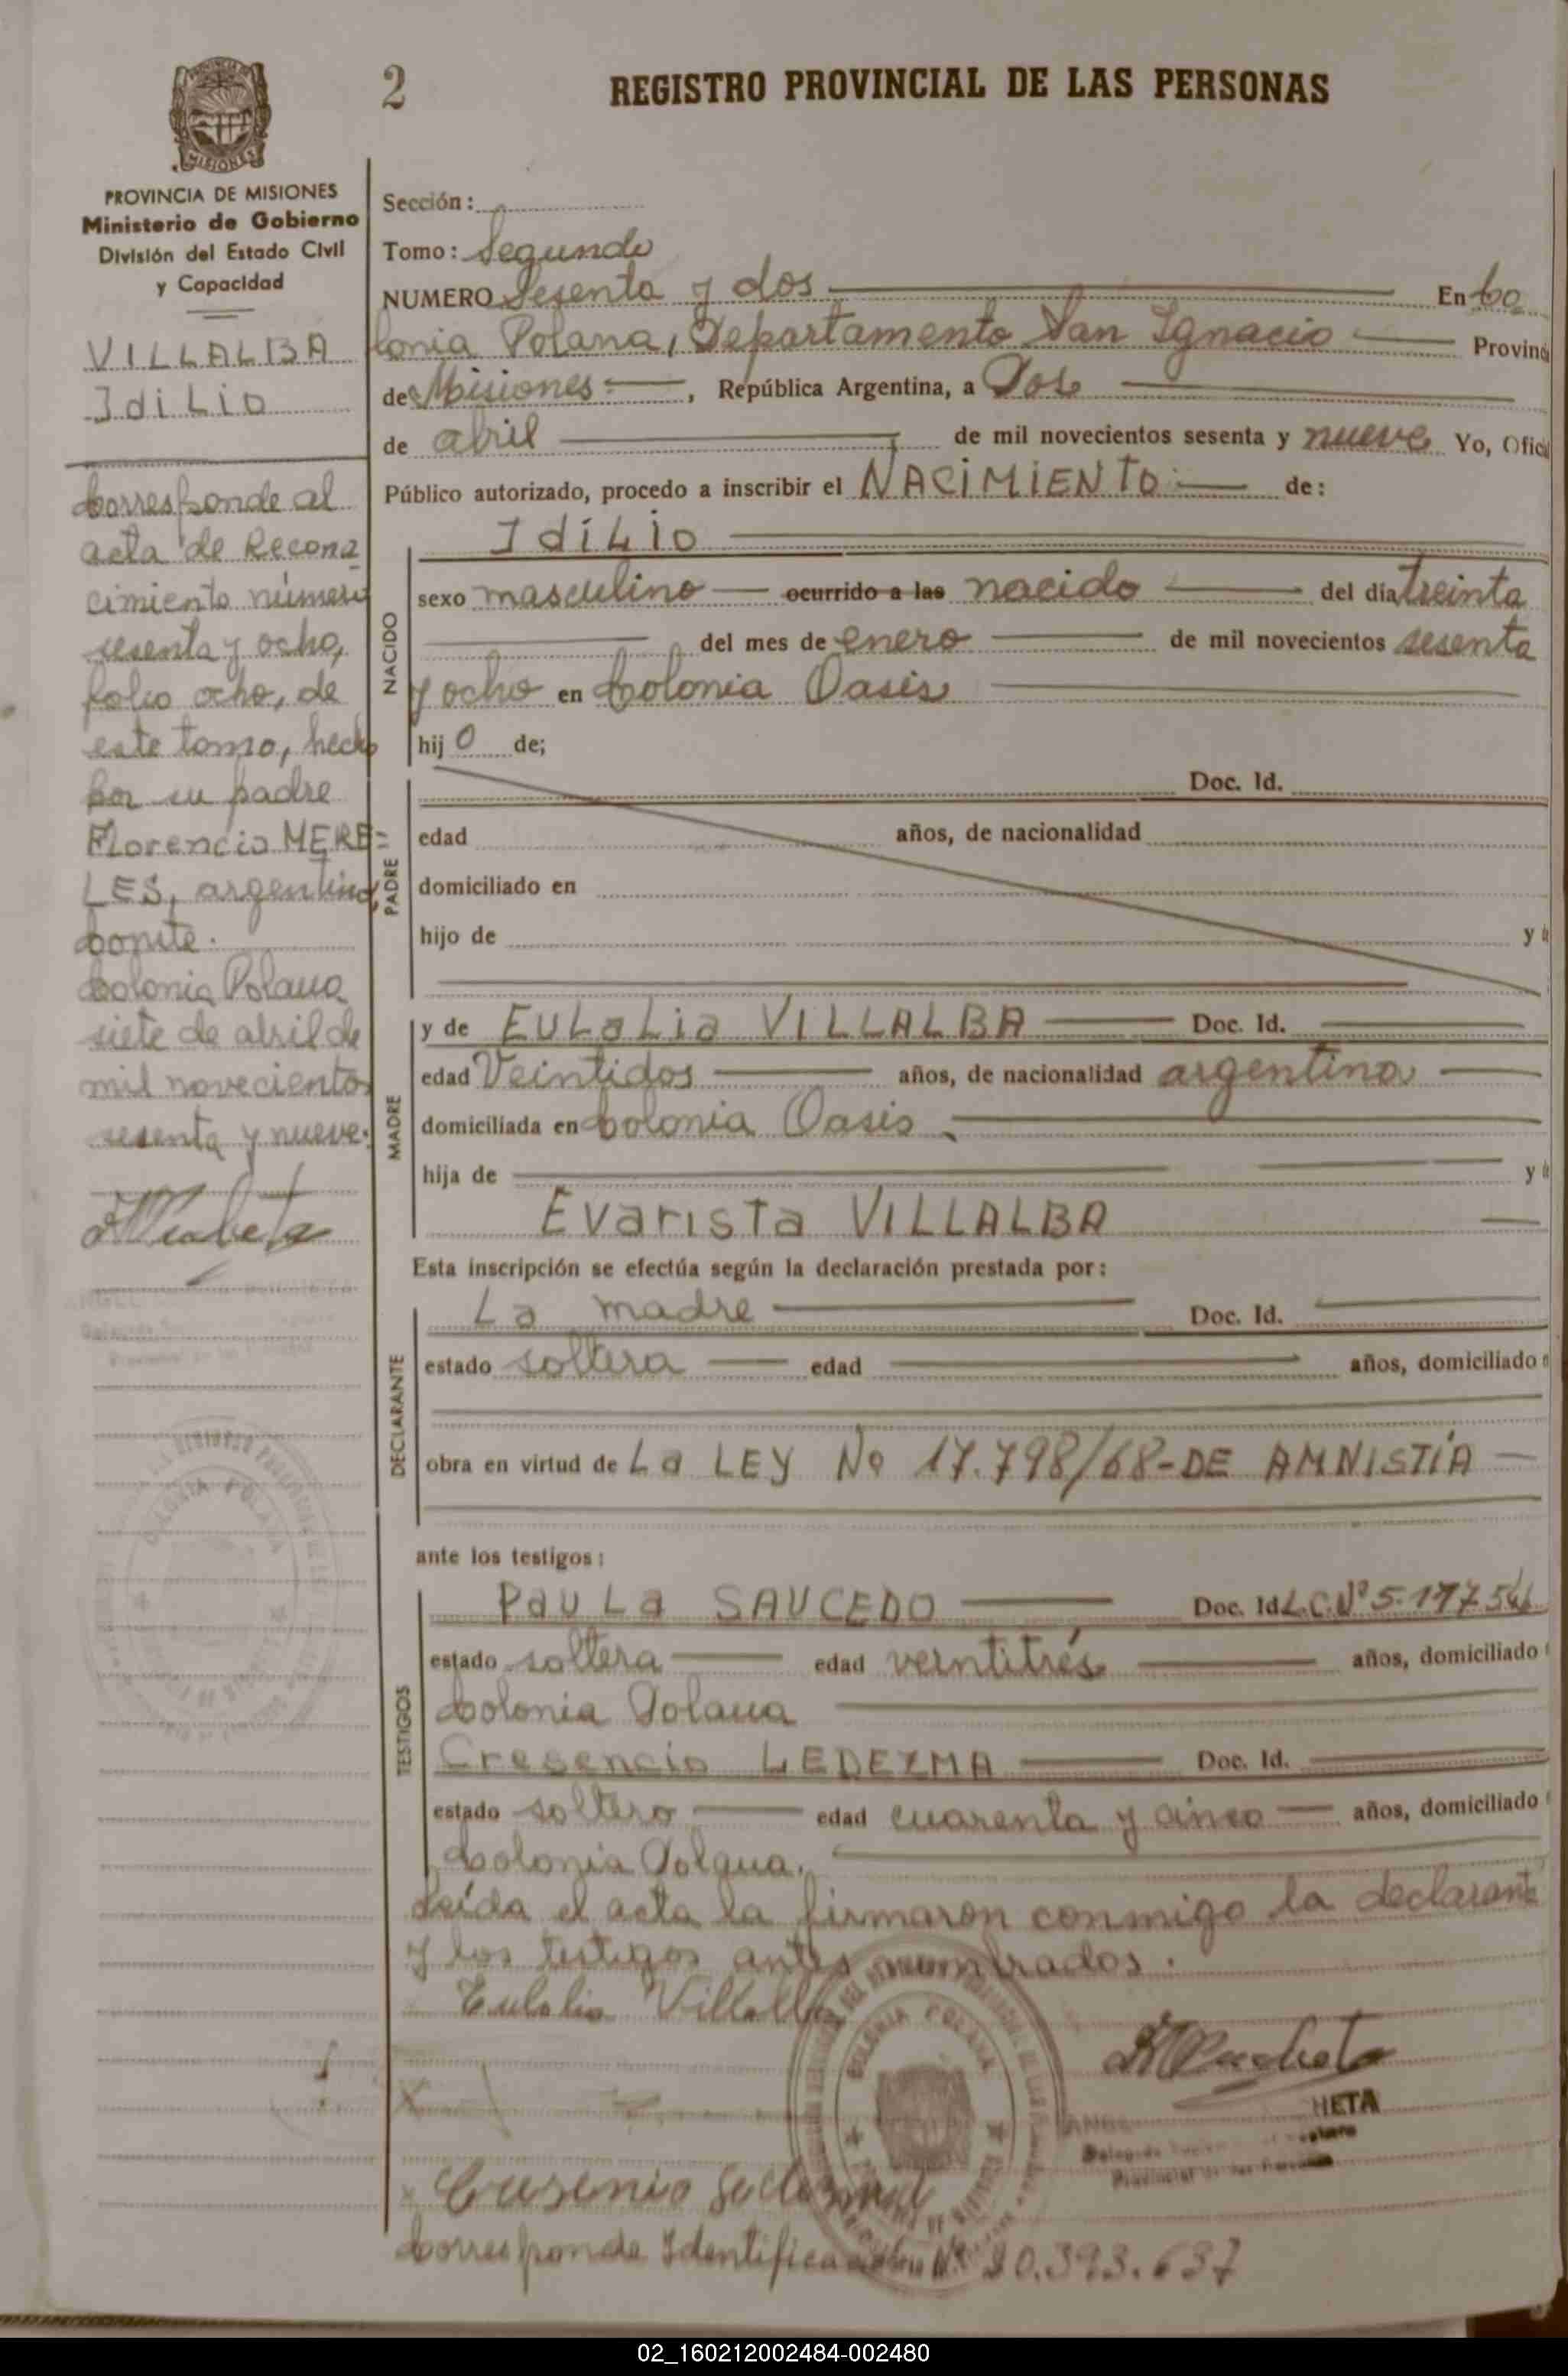 2
REGISTRO PROVINCIAL DE LAS PERSONAS
PROVINCIA DE MISIONES
Ministerio de Gobierno
División del Estado Civil
y Capacidad
VILLALBA
Idilio
Corresponde al
acta de Recono
cimiento número
sesenta y ocho,
folio ocho, de
este tomo, hecho
por su padre
Florencio MERE
LES, argentino,
Conste.
Colonia Polana
siete de abril de
mil novecientos
sesenta y nueve.
Sección:
Tomo: Segundo
NUMERO Sesenta y dos En Co
lonia Polana, Departamento San Ignacio Provinc
de Misiones , República Argentina, a Dos
de abril de mil novecientos sesenta y nueve Yo, Ofici
Público autorizado, procedo a inscribir el NACIMIENTO de:
NACIDO
Idilio
sexo masculino ocurrido a las nacido del día treinta
del mes de enero de mil novecientos sesenta
y ocho en Colonia Oasis
hij o de;
PADRE
Doc. Id.
edad años, de nacionalidad
domiciliado en
hijo de y
MADRE
y de Eulalia VILLALBA Doc. Id.
edad Veintidos años, de nacionalidad argentina
domiciliada en Colonia Oasis
hija de y
Evarista VILLALBA
Esta inscripción se efectúa según la declaración prestada por:
DECLARANTE
La madre Doc. Id.
estado soltera edad años, domiciliado
obra en virtud de La LEY No 17.798/68-DE AMNISTÍA
ante los testigos:
TESTIGOS
Paula SAUCEDO Doc. Id. L.C.Nº 5.177.54
estado soltera edad veintitrés años, domiciliado
Colonia Polana
Cresencio LEDEZMA Doc. Id.
estado soltero edad cuarenta y cinco años, domiciliado
Colonia Polana.
Leída el acta la firmaron conmigo la declarante
y los testigos antes nombrados.
Eulalia Villalba
COLONIA POLANA
HETA
Corresponde Identificación Nº 20.393.637
02_160212002484-002480